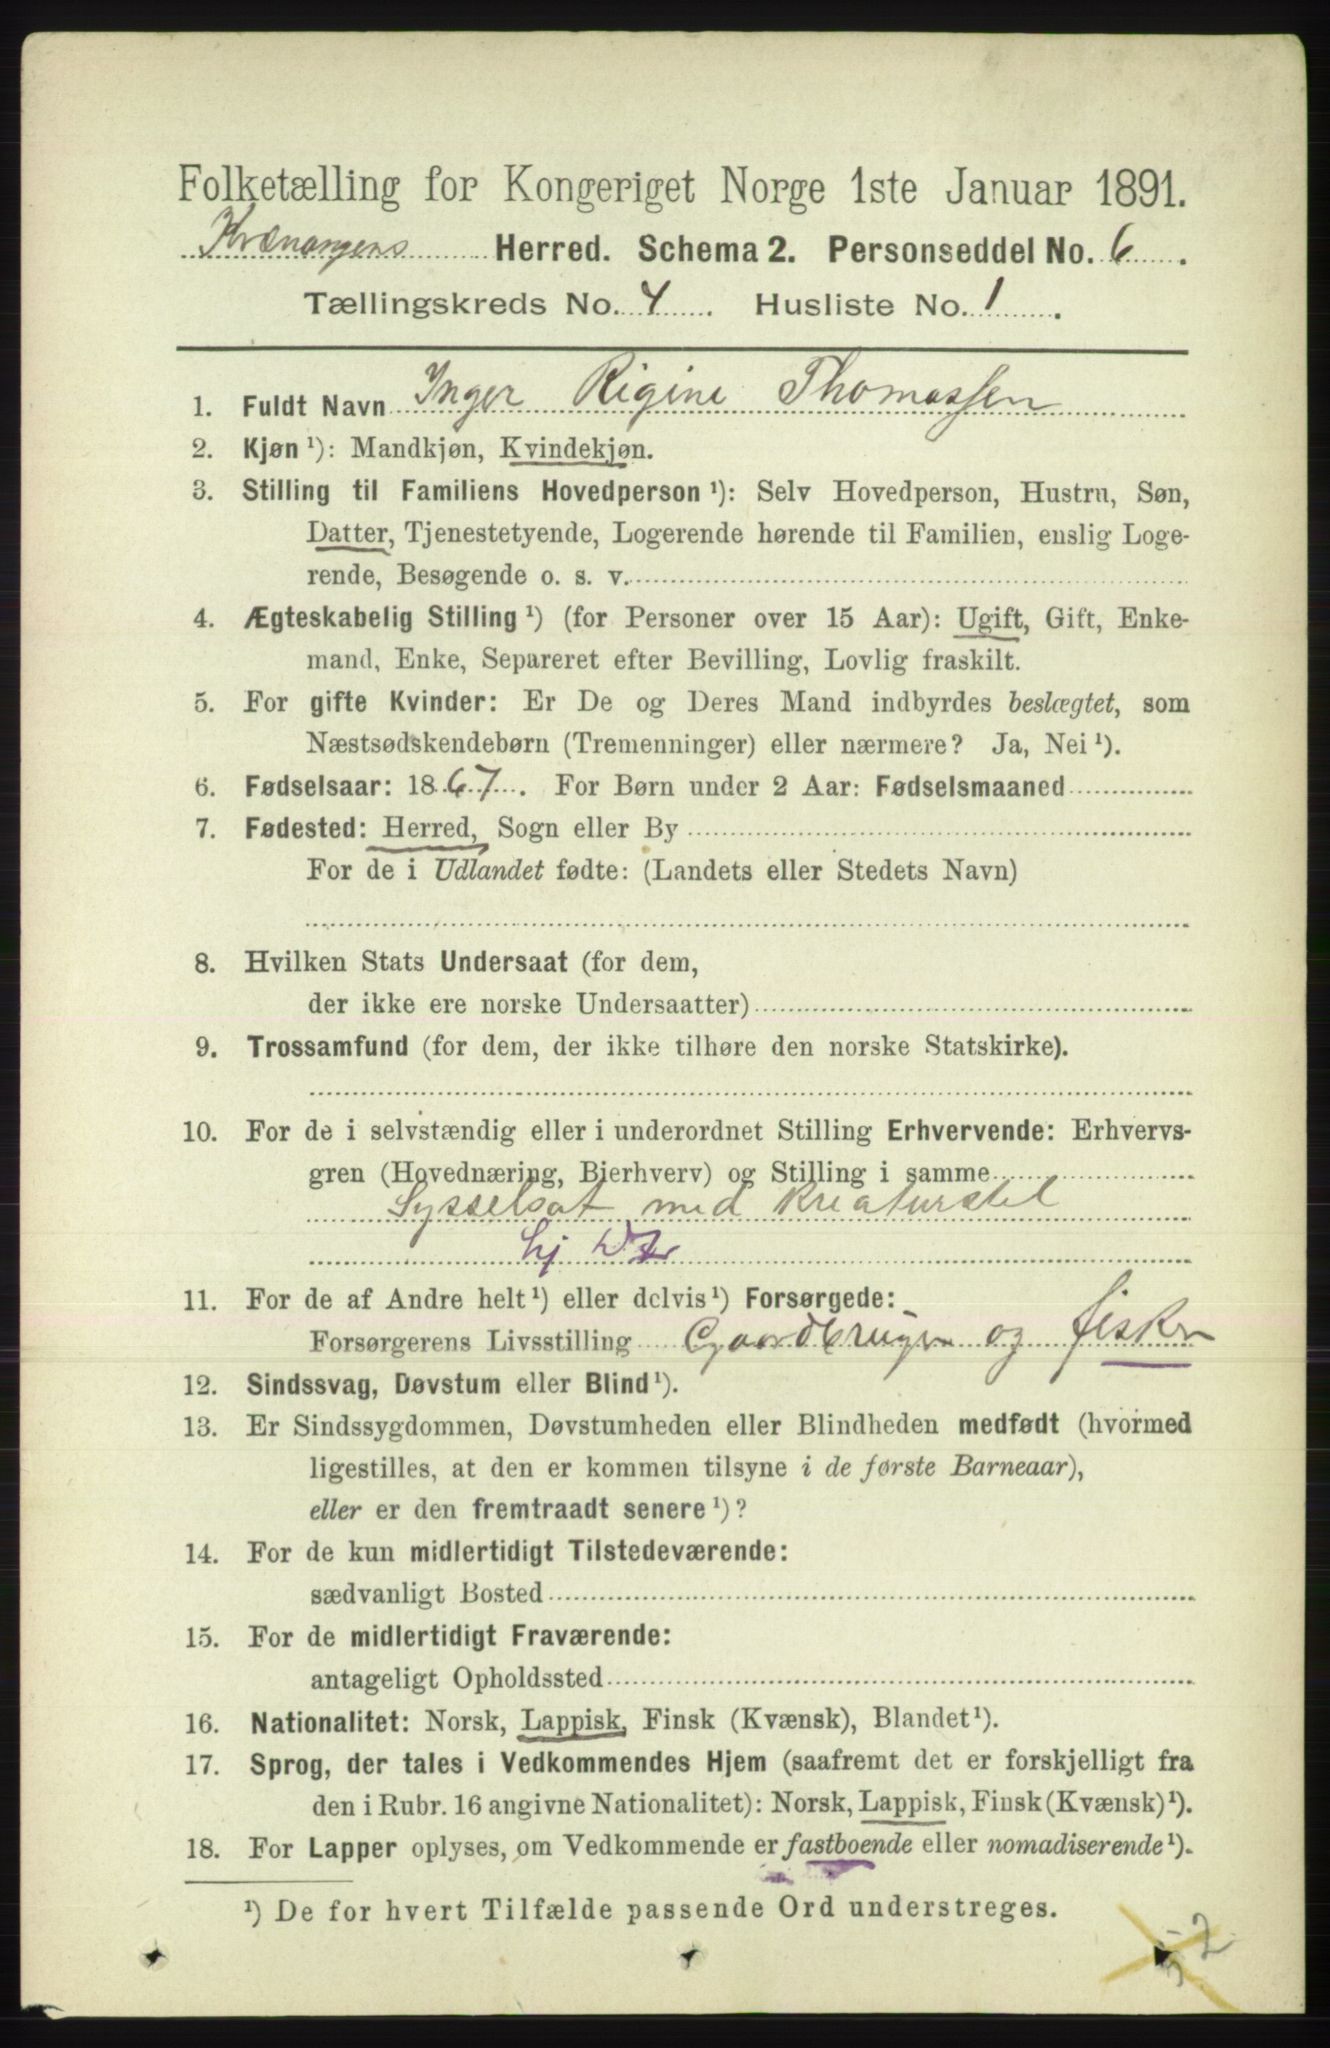 Folketælling for Kongeriget Norge 1ste Januar 1891.
Kvænangens Herred. Schema 2. Personseddel No. 6.
Tællingskreds No. 4. Husliste No. 1.
1. Fuldt Navn Inger Rigine Thomassen
2. Kjøn ¹): Mandkjøn, Kvindekjøn.
3. Stilling til Familiens Hovedperson ¹): Selv Hovedperson, Hustru, Søn,
Datter, Tjenestetyende, Logerende hørende til Familien, enslig Loge-
rende, Besøgende o. s. v.
4. Ægteskabelig Stilling ¹) (for Personer over 15 Aar): Ugift, Gift, Enke-
mand, Enke, Separeret efter Bevilling, Lovlig fraskilt.
5. For gifte Kvinder: Er De og Deres Mand indbyrdes beslægtet, som
Næstsødskendebørn (Tremenninger) eller nærmere? Ja, Nei ¹).
6. Fødselsaar: 1867. For Børn under 2 Aar: Fødselsmaaned
7. Fødested: Herred, Sogn eller By
For de i Udlandet fødte: (Landets eller Stedets Navn)
8. Hvilken Stats Undersaat (for dem,
der ikke ere norske Undersaatter)
9. Trossamfund (for dem, der ikke tilhøre den norske Statskirke).
10. For de i selvstændig eller i underordnet Stilling Erhvervende: Erhvervs-
gren (Hovednæring, Bierhverv) og Stilling i samme
Sysselsat med kreaturstel
hj
11. For de af Andre helt ¹) eller delvis ¹) Forsørgede:
Forsørgerens Livsstilling Gaardbruger og fisker
12. Sindssvag, Døvstum eller Blind ¹).
13. Er Sindssygdommen, Døvstumheden eller Blindheden medfødt (hvormed
ligestilles, at den er kommen tilsyne i de første Barneaar),
eller er den fremtraadt senere ¹)?
14. For de kun midlertidigt Tilstedeværende:
sædvanligt Bosted
15. For de midlertidigt Fraværende:
antageligt Opholdssted
16. Nationalitet: Norsk, Lappisk, Finsk (Kvænsk), Blandet ¹).
17. Sprog, der tales i Vedkommendes Hjem (saafremt det er forskjelligt fra
den i Rubr. 16 angivne Nationalitet): Norsk, Lappisk, Finsk (Kvænsk) ¹).
18. For Lapper oplyses, om Vedkommende er fastboende eller nomadiserende ¹).
¹) De for hvert Tilfælde passende Ord understreges.